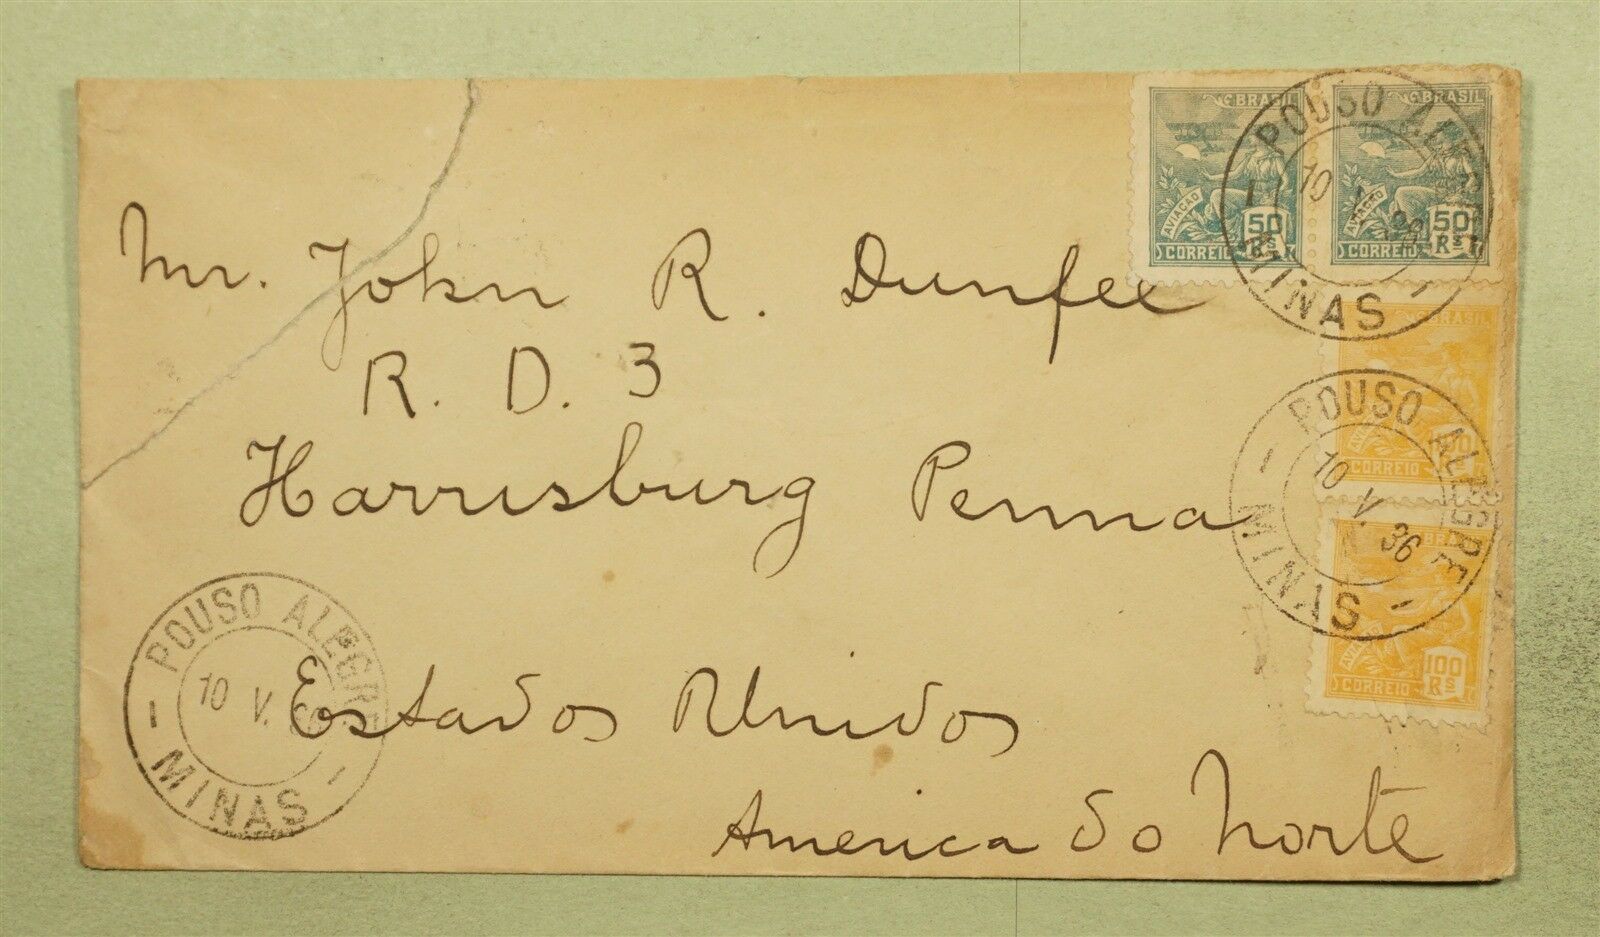 BRASIL
AVIAÇÃO
50 Rs
CORREIO
BRASIL
AVIAÇÃO
50 Rs
CORREIO
POUSO ALEGRE
10 V. 36
MINAS
Mr. John R. Dunfee
R. D. 3
Harrisburg Penna
Estados Unidos
America do Norte
BRASIL
AVIAÇÃO
100 Rs
CORREIO
POUSO ALEGRE
10 V. 36
MINAS
BRASIL
AVIAÇÃO
100 Rs
CORREIO
POUSO ALEGRE
10 V.
MINAS